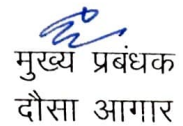 मुख्य प्रबंधक
दौसा आगार